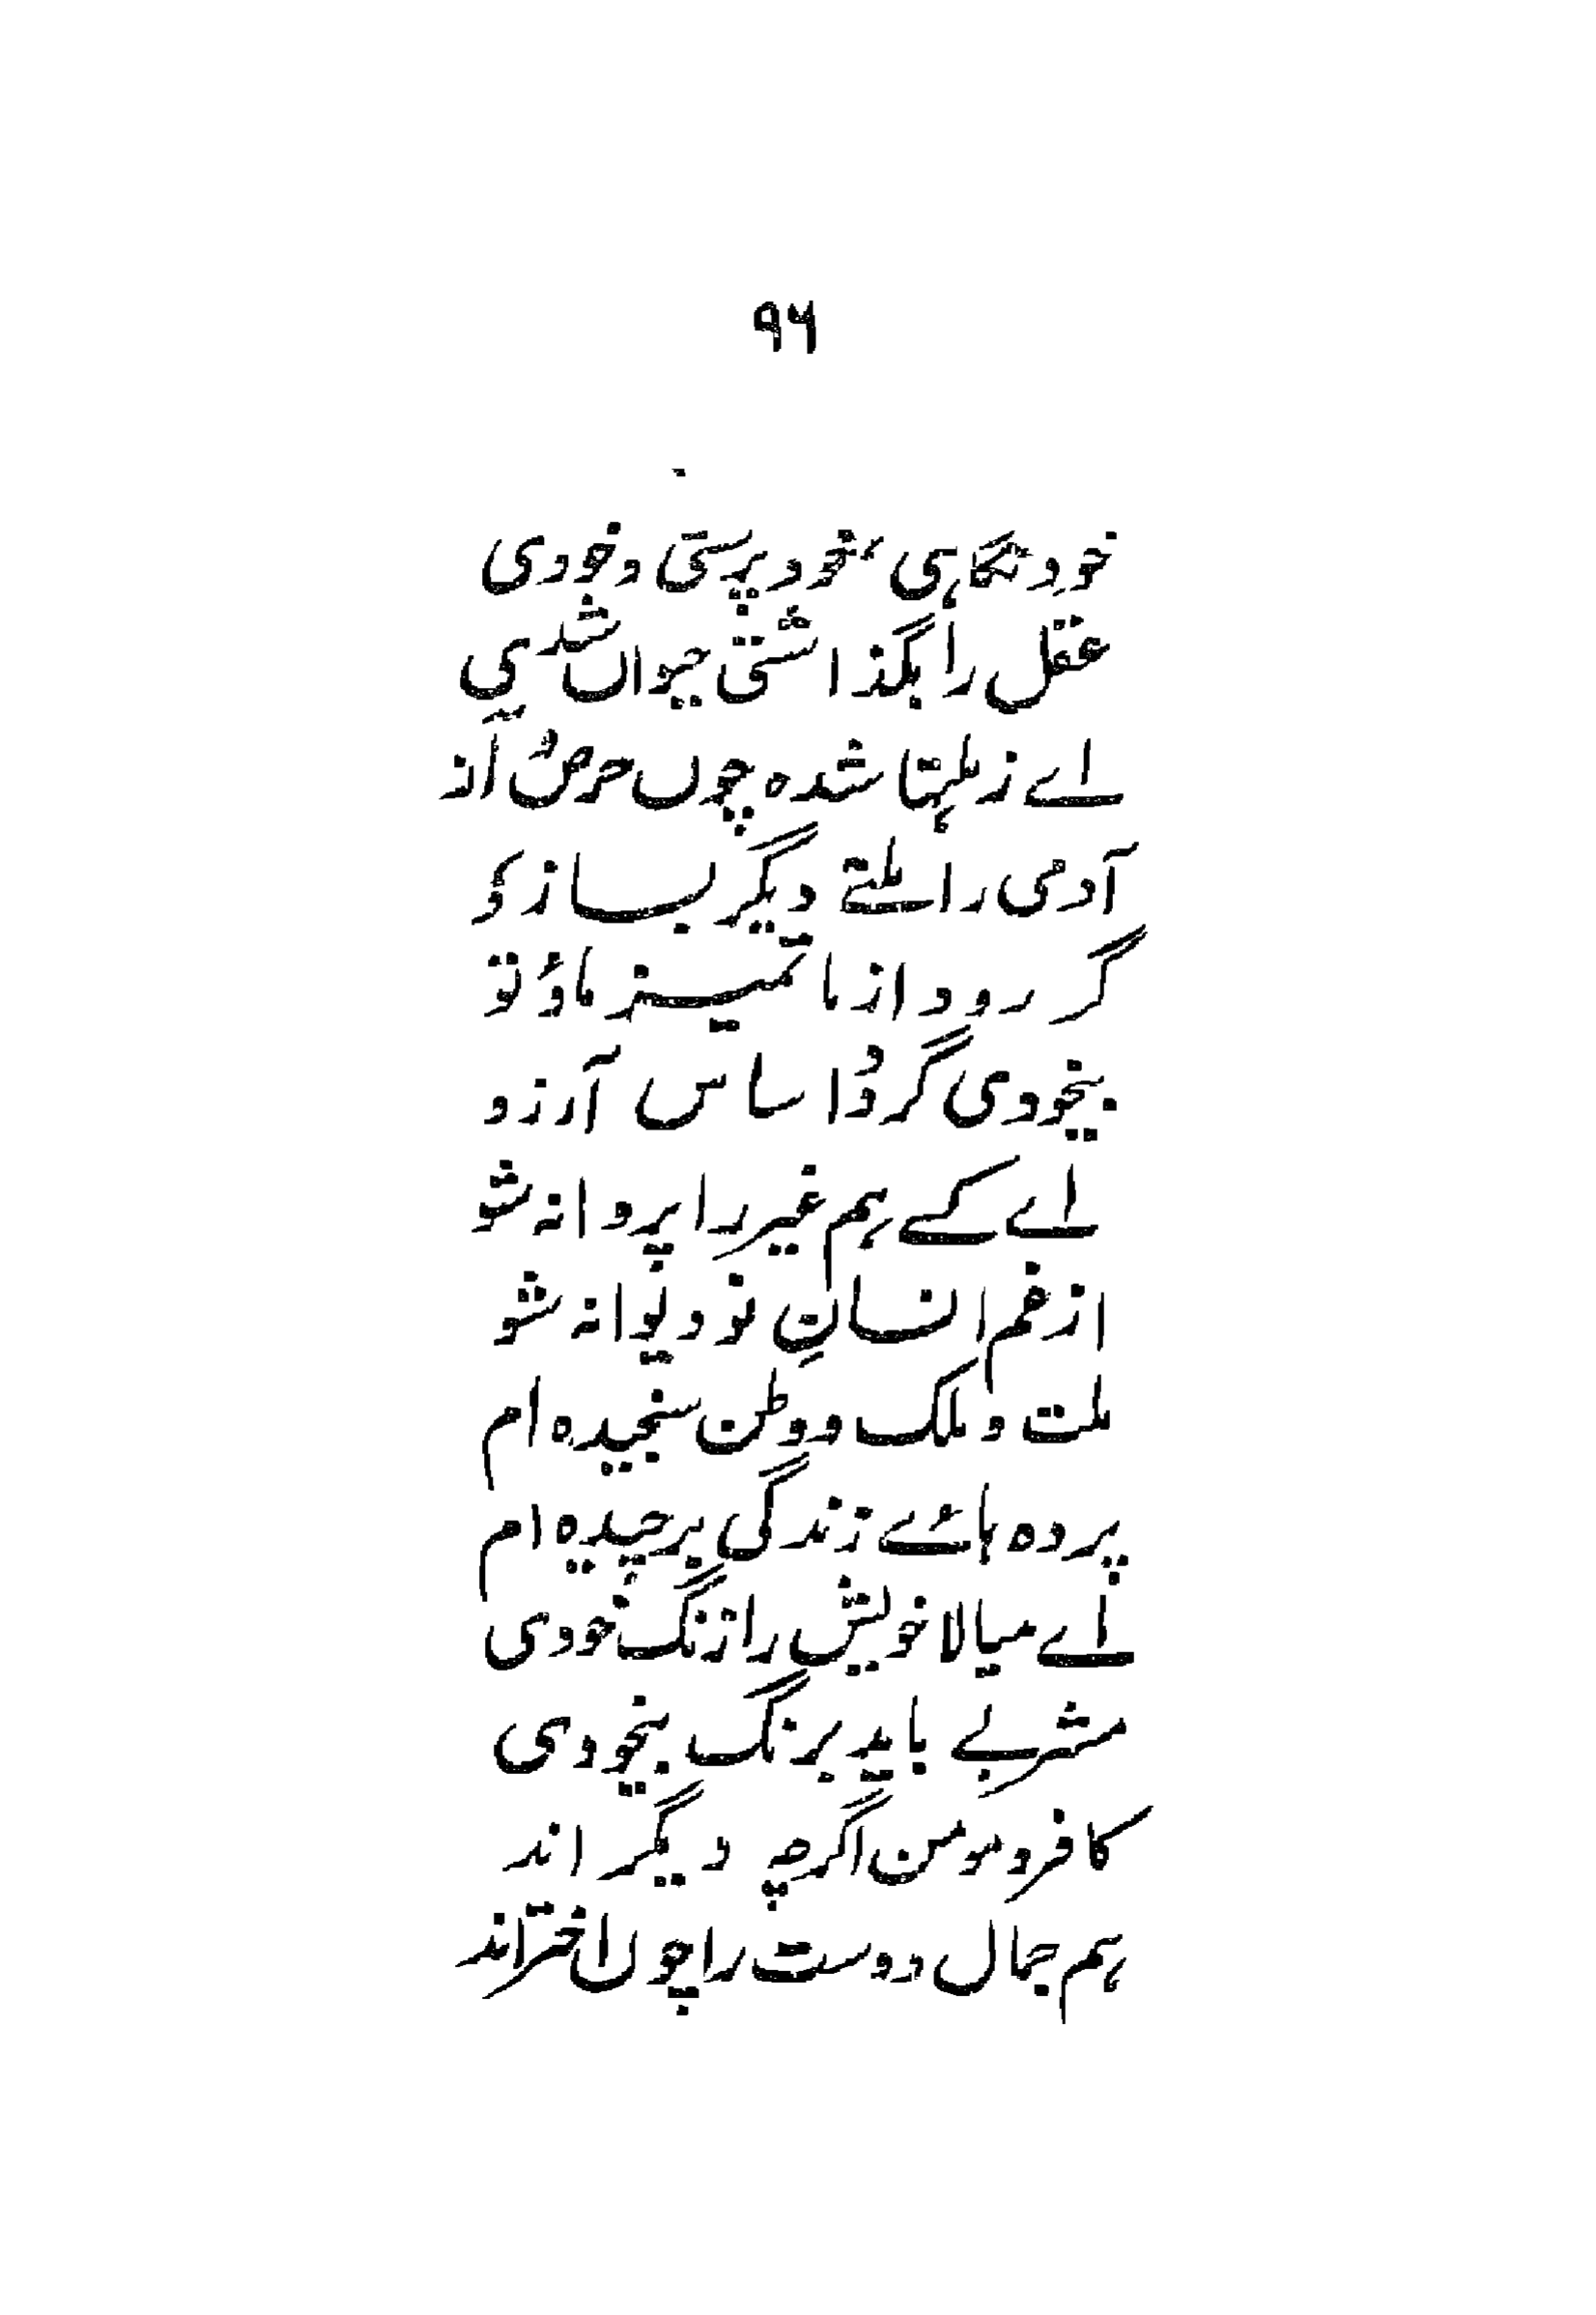 ۹۶
خود نگاہی، خود پرستی و خودی
عقل را بگذاشتی چواں شدی
اے ز ملتہا شدہ چوں حرص و آز
آدمی را ملتے دیگر بساز
گر رود از ما تمیز ما و تو
بیخودی گردد اساس آرزو
اے کے ہم غیر را پروانہ شو
از غم انسانِ نو دیوانہ شو
ملت و ملک و وطن سنجیدہ ام
پردہ ہائے زندگی برچیدہ ام
اے میالا خویش را زنگ خودی
مشربے باید برنگ بیخودی
کافر و مومن اگرچہ دیگر اند
ہم جمال دوست را چوں اختر اند